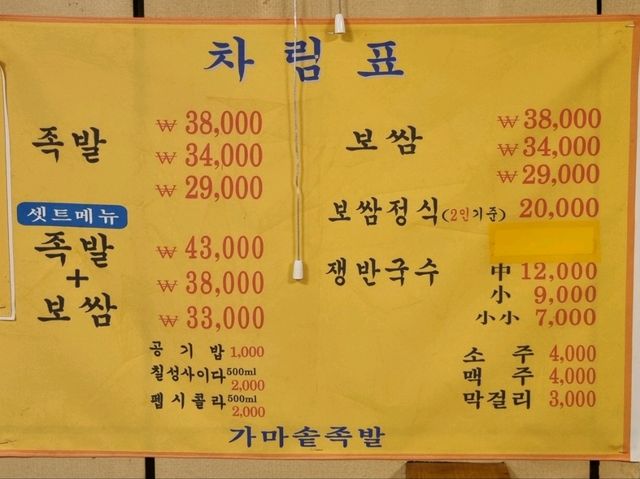 차림표
족발 ₩ 38,000
₩ 34,000
₩ 29,000
셋트메뉴
족발
+
보쌈
₩ 43,000
₩ 38,000
₩ 33,000
공기밥 1,000
칠성사이다 500ml
2,000
펩시콜라 500ml
2,000
보쌈 ₩ 38,000
₩ 34,000
₩ 29,000
보쌈정식(2인기준) 20,000
쟁반국수 中 12,000
小 9,000
小小 7,000
소주 4,000
맥주 4,000
막걸리 3,000
가마솥족발